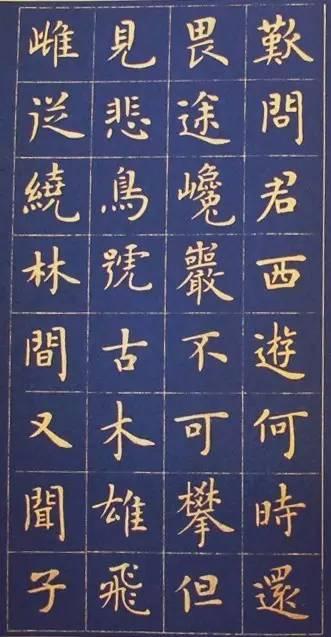 歎問君西遊何時還
畏途巉巖不可攀但
見悲鳥號古木雄飛
雌从繞林間又聞子